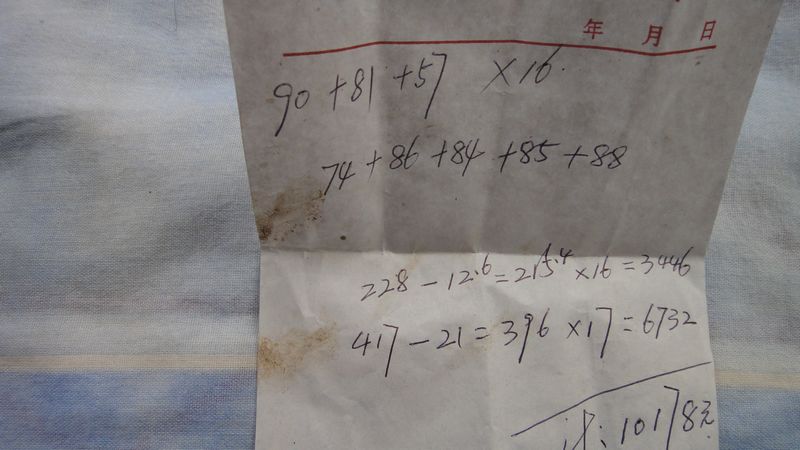 年 月 日
90 + 81 + 57 × 16.
74 + 86 + 84 + 85 + 88
228 - 12.6 = 215.4 × 16 = 3446
417 - 21 = 396 × 17 = 6732
计: 10178元